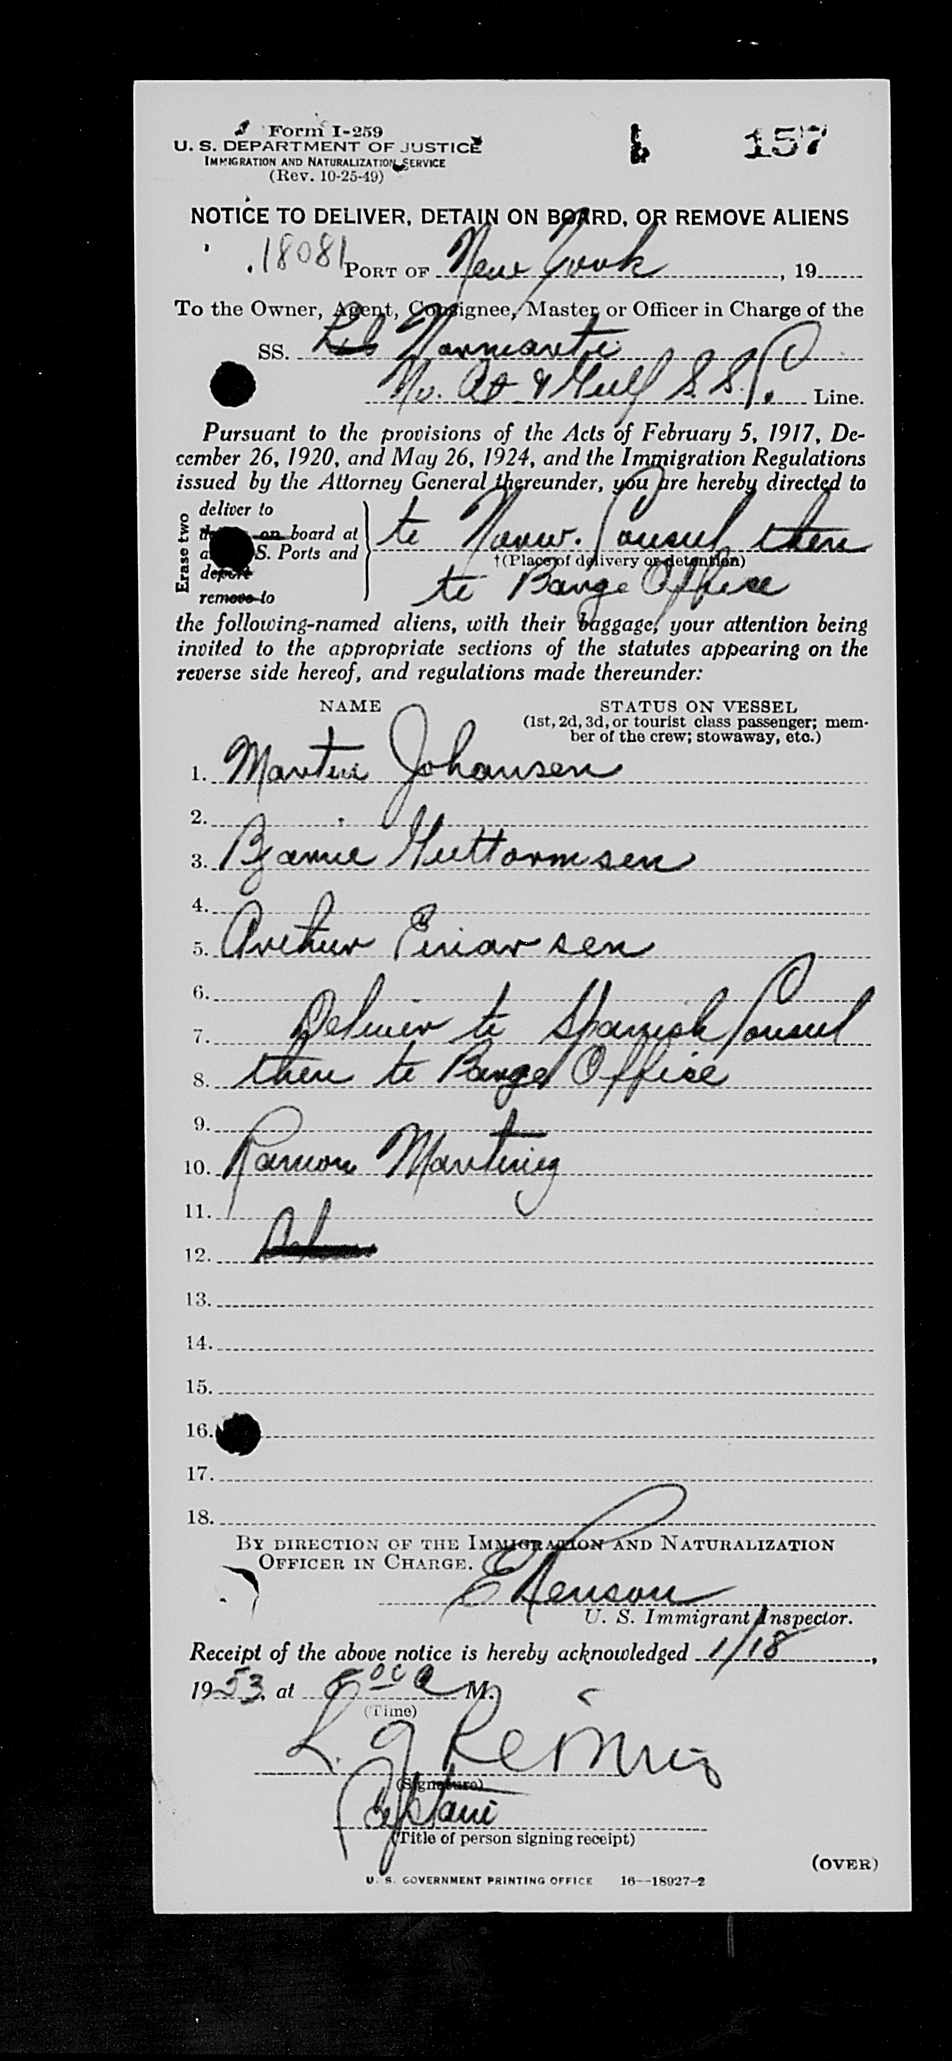 Form I-259
U. S. DEPARTMENT OF JUSTICE
IMMIGRATION AND NATURALIZATION SERVICE
(Rev. 10-25-49)
157
NOTICE TO DELIVER, DETAIN ON BOARD, OR REMOVE ALIENS
18081 PORT OF New York, 19
To the Owner, Agent, Consignee, Master or Officer in Charge of the
SS. Normanti
No. At & Gulf S. S. Line.
Pursuant to the provisions of the Acts of February 5, 1917, De-
cember 26, 1920, and May 26, 1924, and the Immigration Regulations
issued by the Attorney General thereunder, you are hereby directed to
Erase two
deliver to
on board at
S. Ports and
deport
remove to
to Norw. Consul then
†(Place of delivery or detention)
to Barge Office
the following-named aliens, with their baggage, your attention being
invited to the appropriate sections of the statutes appearing on the
reverse side hereof, and regulations made thereunder:
NAME
STATUS ON VESSEL
(1st, 2d, 3d, or tourist class passenger; mem-
ber of the crew; stowaway, etc.)
1. Martin Johansen
2.
3. Bjarne Guttormsen
4.
5. Arthur Einarsen
6.
7. Deliver to Spanish Consul
8. then to Barge Office
9.
10. Ramon Martinez
11.
12.
13.
14.
15.
16.
17.
18.
BY DIRECTION OF THE IMMIGRATION AND NATURALIZATION
OFFICER IN CHARGE.
E Benson
U. S. Immigrant Inspector.
Receipt of the above notice is hereby acknowledged 1/18,
1953, at 8 00 A M.
(Time)
L. G.
(Signature)
Captain
(Title of person signing receipt)
(OVER)
U. S. GOVERNMENT PRINTING OFFICE 16—18927-2